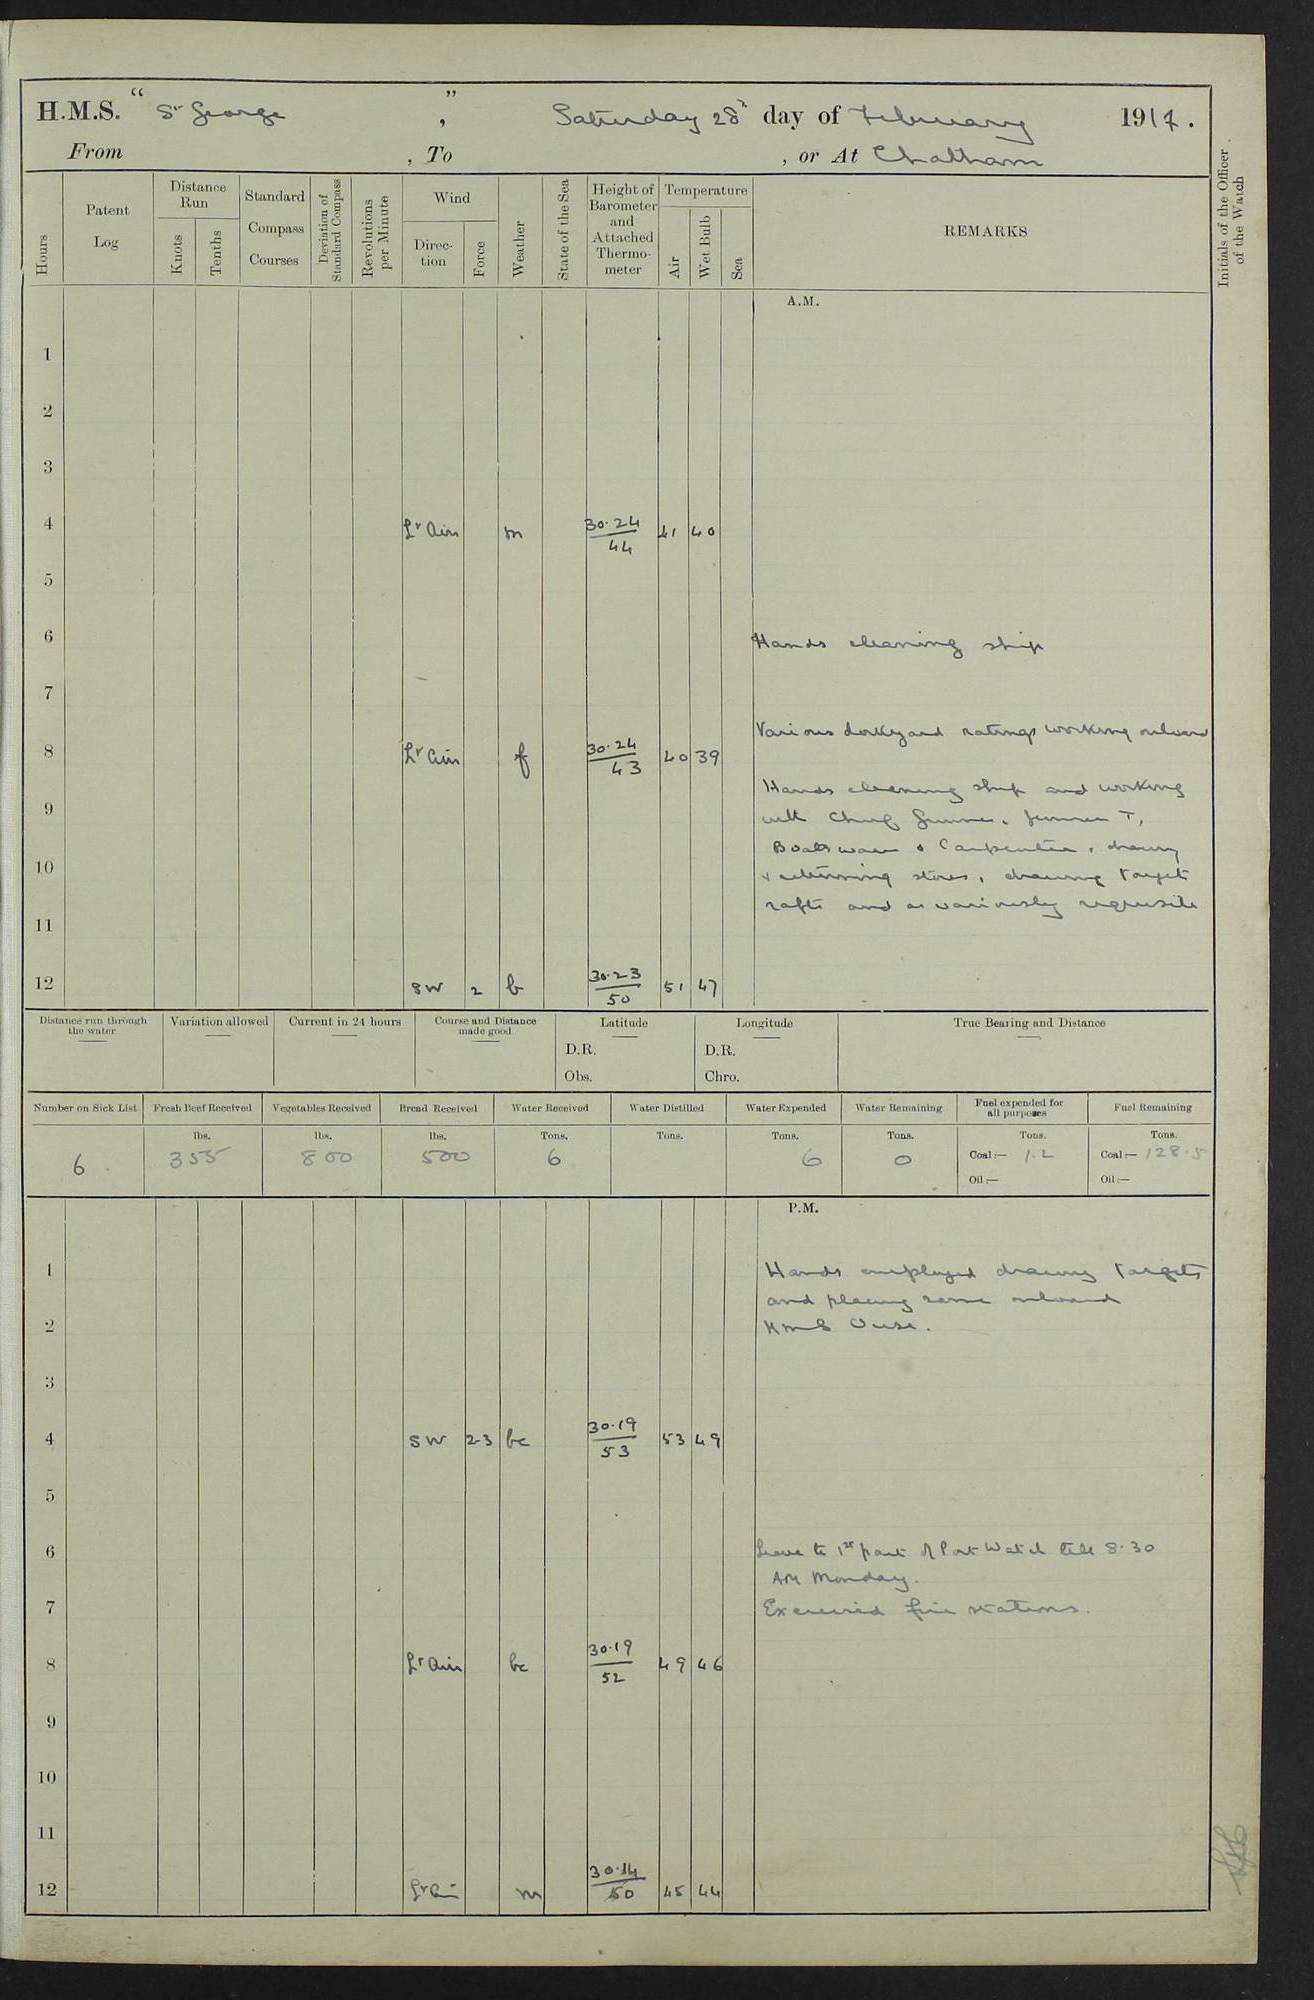 H.M.S. “ St George ” , Saturday 28th day of February 1914.
From , To , or At Chatham
Initials of the Officer of the Watch
Hours
Patent Log
Distance Run
Knots
Tenths
Standard Compass Courses
Deviation of Standard Compass
Revolutions per Minute
Wind
Direc-tion
Force
Weather
State of the Sea
Height of Barometer and Attached Thermo-meter
Temperature
Air
Wet Bulb
Sea
REMARKS
A.M.
1
2
3
4 Lt Airs m 30.24/44 41 40
5
6 Hands cleaning ship
7
Various dockyard ratings working onboard
8 Lt airs f 30.24/43 40 39
Hands cleaning ship and working
9
with Chief Gunner, Gunner T,
Boatswain & Carpenter, drawing
10
& returning stores, drawing target
rafts and as variously requisite
11
12 SW 2 b 30.23/50 51 47
Distance run through the water
Variation allowed
Current in 24 hours
Course and Distance made good
Latitude
D.R.
Obs.
Longitude
D.R.
Chro.
True Bearing and Distance
Number on Sick List
Fresh Beef Received
Vegetables Received
Bread Received
Water Received
Water Distilled
Water Expended
Water Remaining
Fuel expended for all purposes
Fuel Remaining
lbs. lbs. lbs. Tons. Tons. Tons. Tons. Tons. Tons.
6 355 800 500 6 6 0 Coal:— 1.2 Coal:— 128.5
Oil:— Oil:—
P.M.
1 Hands employed drawing targets
and placing same onboard
2 HMS Ouse.
3
4 SW 2-3 bc 30.19/53 53 49
5
6 Leave to 1st part of Port Watch till 8.30
AM Monday.
7 Exercised fire stations.
8 Lt airs bc 30.19/52 49 46
9
10
11
12 Lt air m 30.14/50 45 44